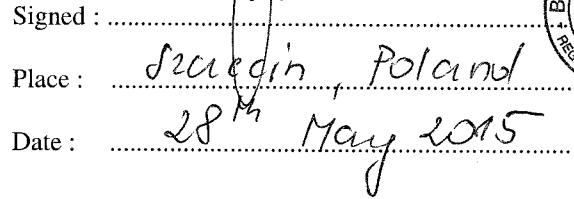 Signed :
Place : Szczecin, Poland
Date : 28th May 2015